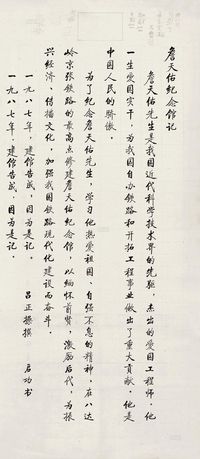 詹天佑纪念馆记
詹天佑先生是我国近代科学技术界的先驱，杰出的爱国工程师。他
一生爱国实干，为我国自办铁路和开拓工程事业做出了重大贡献。他是
中国人民的骄傲。
为了纪念詹天佑先生，学习他热爱祖国、自强不息的精神，在八达
岭京张铁路的最高点修建詹天佑纪念馆，以缅怀前贤，激励后代，为振
兴经济、传播文化、加强我国铁路现代化建设而奋斗。
一九八七年，建馆告成，因为是记。
一九八七年，建馆告成，因为是记。
吕正操撰 启功书